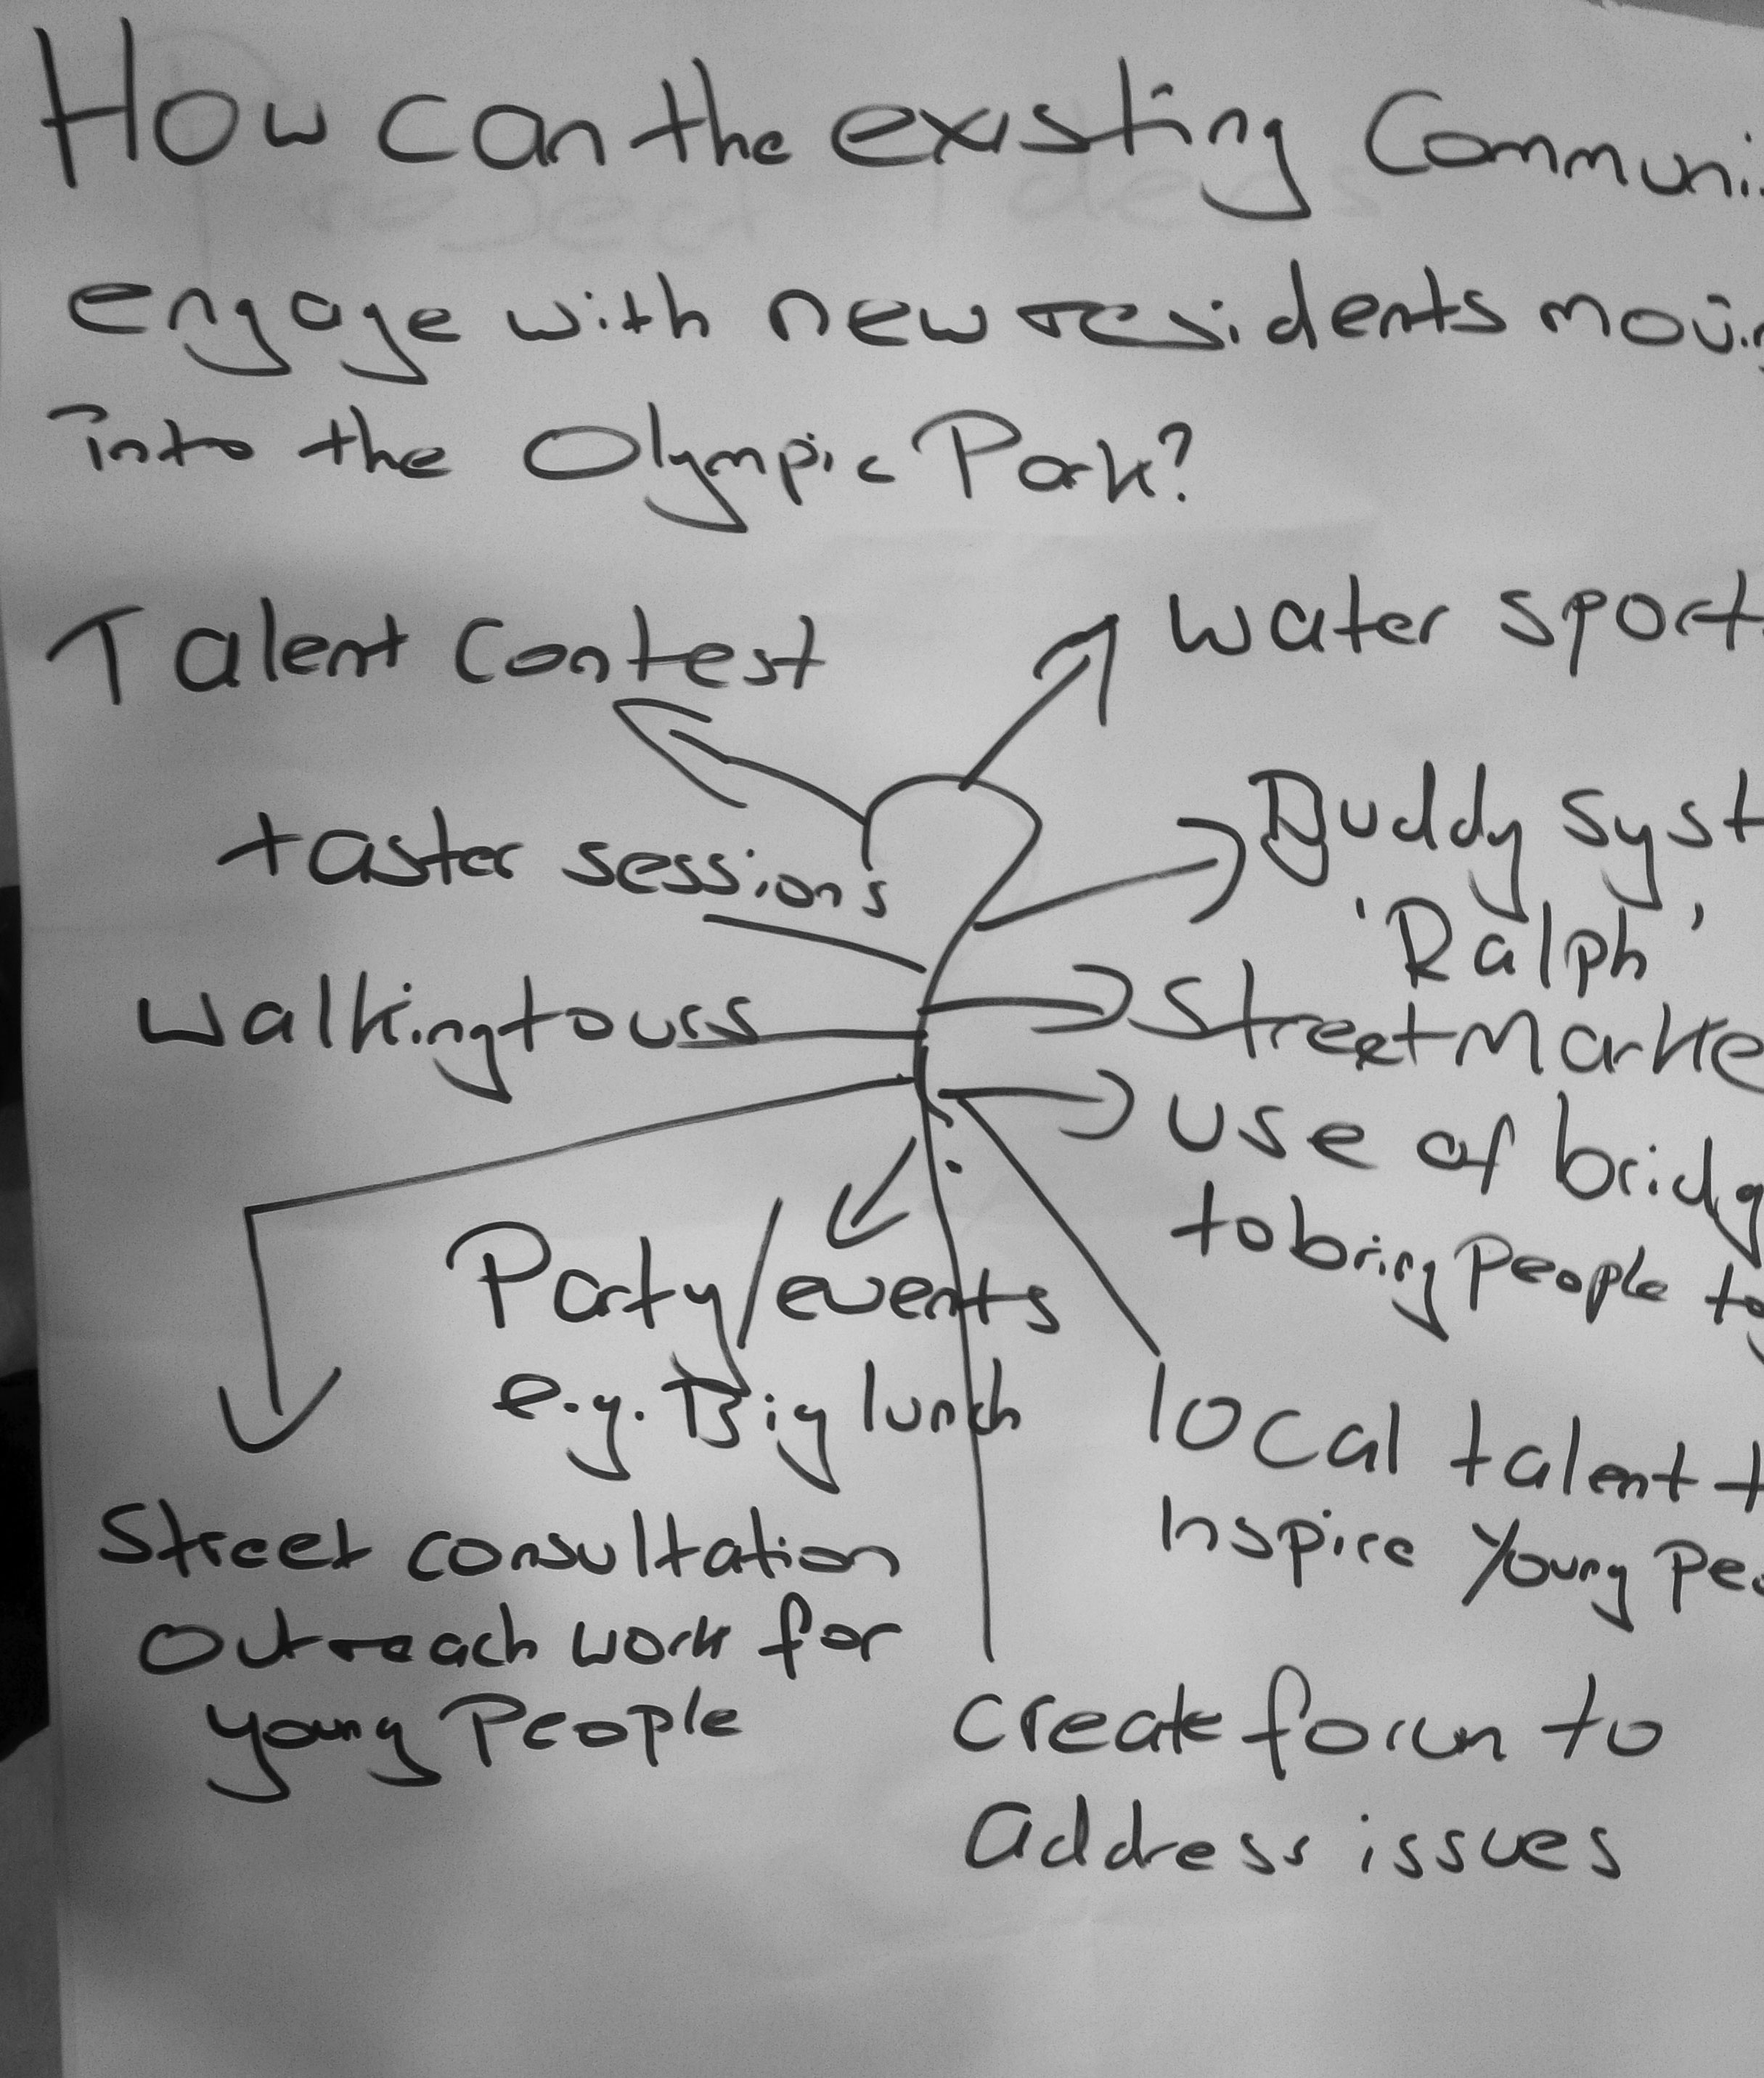 How can the existing Communi
engage with new residents movin
into the Olympic Park?
Talent Contest
water sport
taster sessions
Buddy syst
'Ralph'
walking tours
Street Marke
use of bridg
to bring People tog
Party/events
e.g. Big lunch
local talent t
Inspire Young Peo
Street consultation
outreach work for
young People
create forum to
address issues